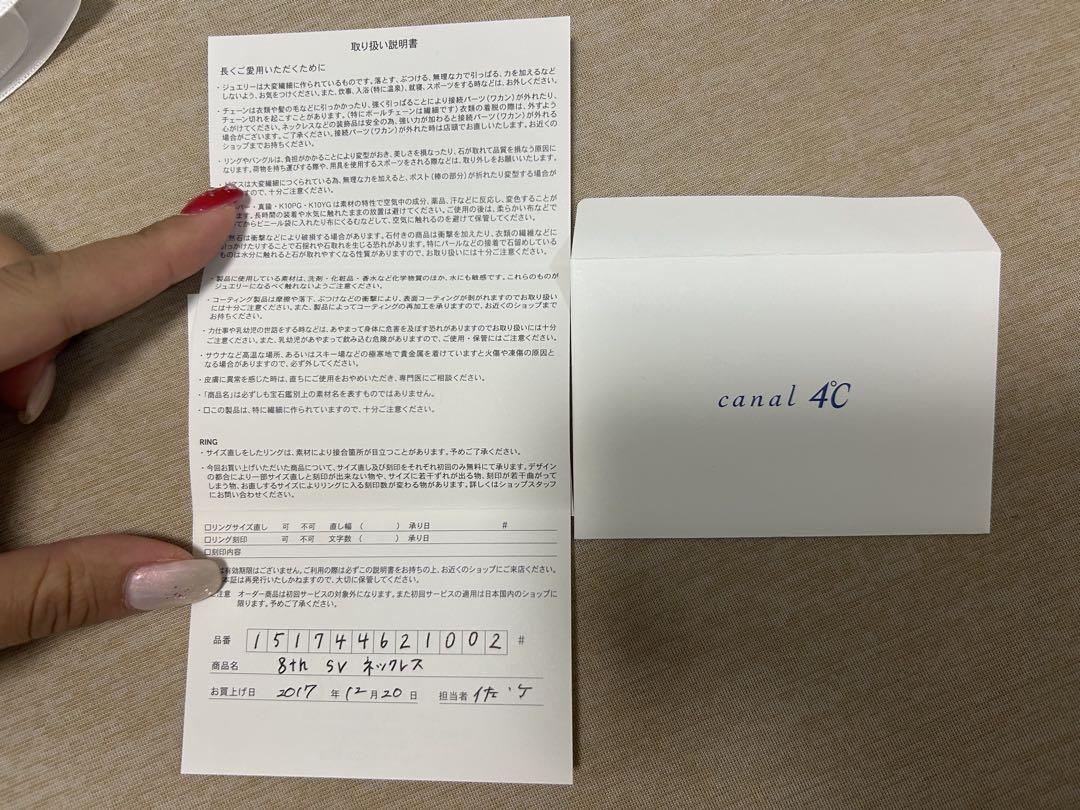 取り扱い説明書
長くご愛用いただくために
・ジュエリーは大変繊細に作られているものです。落とす、ぶつける、無理な力で引っぱる、力を加えるなど
しないよう、お気をつけください。また、炊事、入浴(特に温泉)、就寝、スポーツをする時などは、お外しください。
・チェーンは衣類や髪の毛などに引っかかったり、強く引っぱることにより接続パーツ(ワカン)が外れたり、
チェーン切れを起こすことがあります。(特にボールチェーンは繊細です)衣類の着脱の際は、外すよう
心がけてください。ネックレスなどの装飾品は安全の為、強い力が加わると接続パーツ(ワカン)が外れる
場合がございます。ご了承ください。接続パーツ(ワカン)が外れた時は店頭でお直しいたします。お近くの
ショップまでお持ちください。
・リングやバングルは、負担がかかることにより変型がおき、美しさを損なったり、石が取れて品質を損なう原因に
なります。荷物を持ち運びする際や、用具を使用するスポーツをされる際などは、取り外しをお願いいたします。
・ピアスは大変繊細につくられている為、無理な力を加えると、ポスト(棒の部分)が折れたり変型する場合が
ますので、十分ご注意ください。
バー・真鍮・K10PG・K10YGは素材の特性で空気中の成分、薬品、汗などに反応し、変色することが
ます。長時間の装着や水気に触れたままの放置は避けてください。ご使用の後は、柔らかい布などで
てからビニール袋に入れたり布にくるむなどして、空気に触れるのを避けて保管してください。
然石は衝撃などにより破損する場合があります。石付きの商品は衝撃を加えたり、衣類の繊維などに
引っかけたりすることで石揺れや石取れを生じる恐れがあります。特にパールなどの接着で石留めしている
ものは水分に触れると石が取れやすくなる性質がありますので、お取り扱いには十分ご注意ください。
・製品に使用している素材は、洗剤・化粧品・香水など化学物質のほか、水にも敏感です。これらのものが
ジュエリーになるべく触れないようにしてください。
・コーティング製品は摩擦や落下、ぶつけなどの衝撃により、表面コーティングが剥がれますのでお取り扱い
には十分ご注意ください。また、製品によってコーティングの再加工を承りますので、お近くのショップまで
お持ちください。
・力仕事や乳幼児の世話をする時などは、あやまって身体に危害を及ぼす恐れがありますのでお取り扱いには十分
ご注意ください。また、乳幼児があやまって飲み込む危険がありますので、ご使用・保管にはご注意ください。
・サウナなど高温な場所、あるいはスキー場などの極寒地で貴金属を着けていますと火傷や凍傷の原因と
なる場合がありますので、必ず外してください。
・皮膚に異常を感じた時は、直ちにご使用をおやめいただき、専門医にご相談ください。
・「商品名」は必ずしも宝石鑑別上の素材名を表すものではありません。
・□この製品は、特に繊細に作られていますので、十分ご注意ください。
RING
・サイズ直しをしたリングは、素材により接合箇所が目立つことがあります。予めご了承ください。
・今回お買い上げいただいた商品について、サイズ直し及び刻印をそれぞれ初回のみ無料にて承ります。デザイン
の都合により一部サイズ直しと刻印が出来ない物や、サイズに若干ずれが出る物、刻印が若干曲がって
しまう物、お直しするサイズによりリングに入る刻印数が変わる物があります。詳しくはショップスタッフ
にお問い合わせください。
□リングサイズ直し 可 不可 直し幅 ( ) 承り日 #
□リング刻印 可 不可 文字数 ( ) 承り日
□刻印内容
は有効期限はございません。ご利用の際は必ずこの説明書をお持ちの上、お近くのショップにご来店ください。
本証は再発行いたしかねますので、大切に保管してください。
ご注意 オーダー商品は初回サービスの対象外になります。また初回サービスの適用は日本国内のショップに
限ります。予めご了承ください。
品番 1517446210 02 #
商品名 8th SV ネックレス
お買上げ日 2017 年 12 月 20 日 担当者
canal 4℃